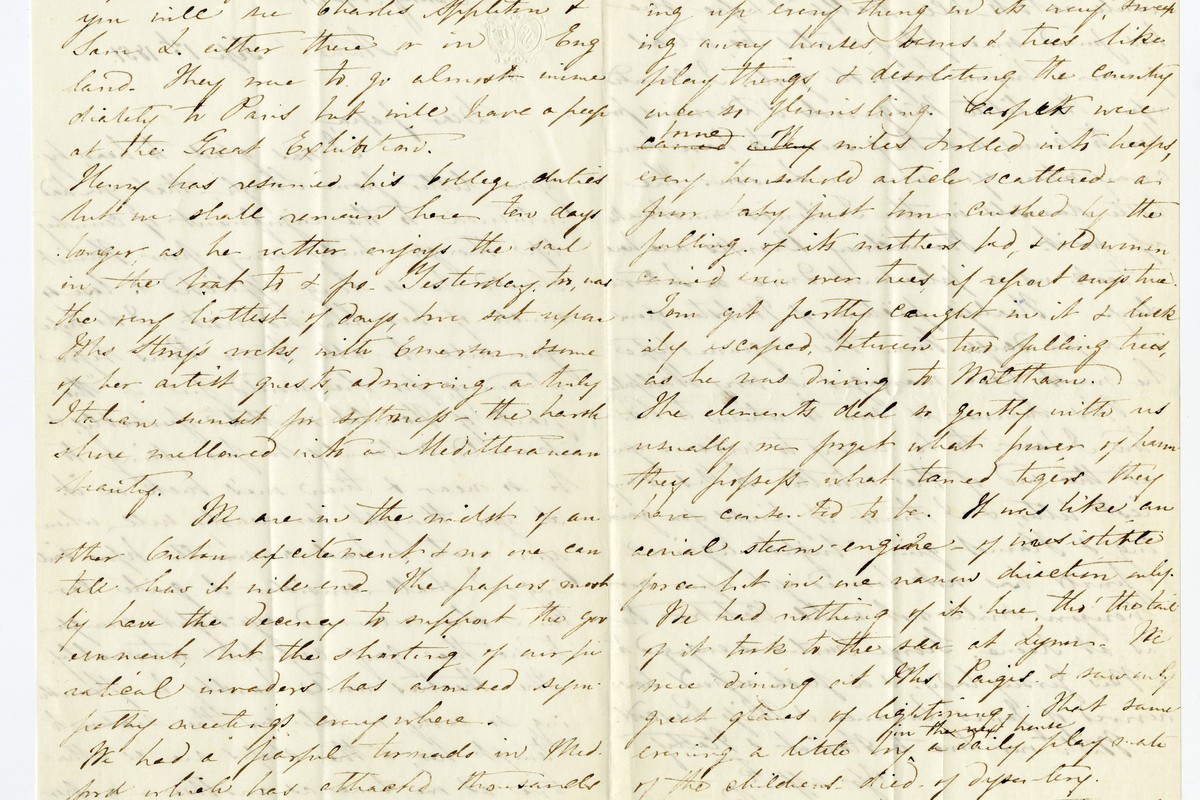 you will see Charles Appleton &
Sam L. either there or in Eng
land. They were to go almost imme
diately to Paris but will have a peep
at the Great Exhibition.
Henry has resumed his College duties
but we shall remain here ten days
longer as he rather enjoys the sail
in the boat to & fro. Yesterday, too, was
the very hottest of days, we sat upon
Mrs Story's rocks, with Emerson & some
of her artist guests, admiring a truly
Italian sunset for softness - the harsh
shore mellowed into a Mediterranean
beauty.
We are in the midst of an
other Cuban excitement, & no one can
tell how it will end. The papers most
ly have the decency to support the gov
ernment, but the shooting of our pi
ratical invaders has aroused sym
pathy meetings every where.
We had a fearful tornado in Med
ford which has attracted thousands
ing up every thing in its way, sweep
ing away houses, barns & trees like
play things, & desolating the country
once so flourishing. Carpets were
carried away some miles & rolled into heaps,
every household article scattered - a
poor baby just born crushed by the
falling of its mothers bed, & old women
carried even over trees if report says true.
Tom got partly caught in it & luck
ily escaped between two falling trees,
as he was driving to Waltham.
The elements deal so gently with us
usually we forget what power of harm
they possess - what tamed tigers they
have consented to be. It was like an
aerial steam-engine - of irresistible
force but in one narrow direction only.
We had nothing of it here, tho' the tail
of it took to the sea at Lynn. We
were dining at Mrs Paiges & saw only
great glares of lightning. That same
evening a little boy in the next house a daily playmate
of the childrens died of dysentery.